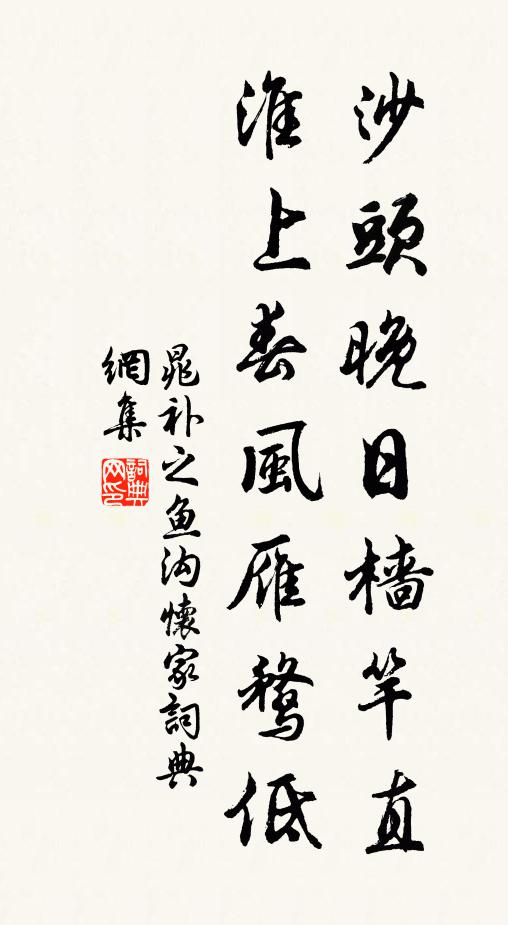 沙頭晚日檣竿直
淮上春風雁鶩低
晁补之鱼沟懷家詞典
網集
詞典
网印